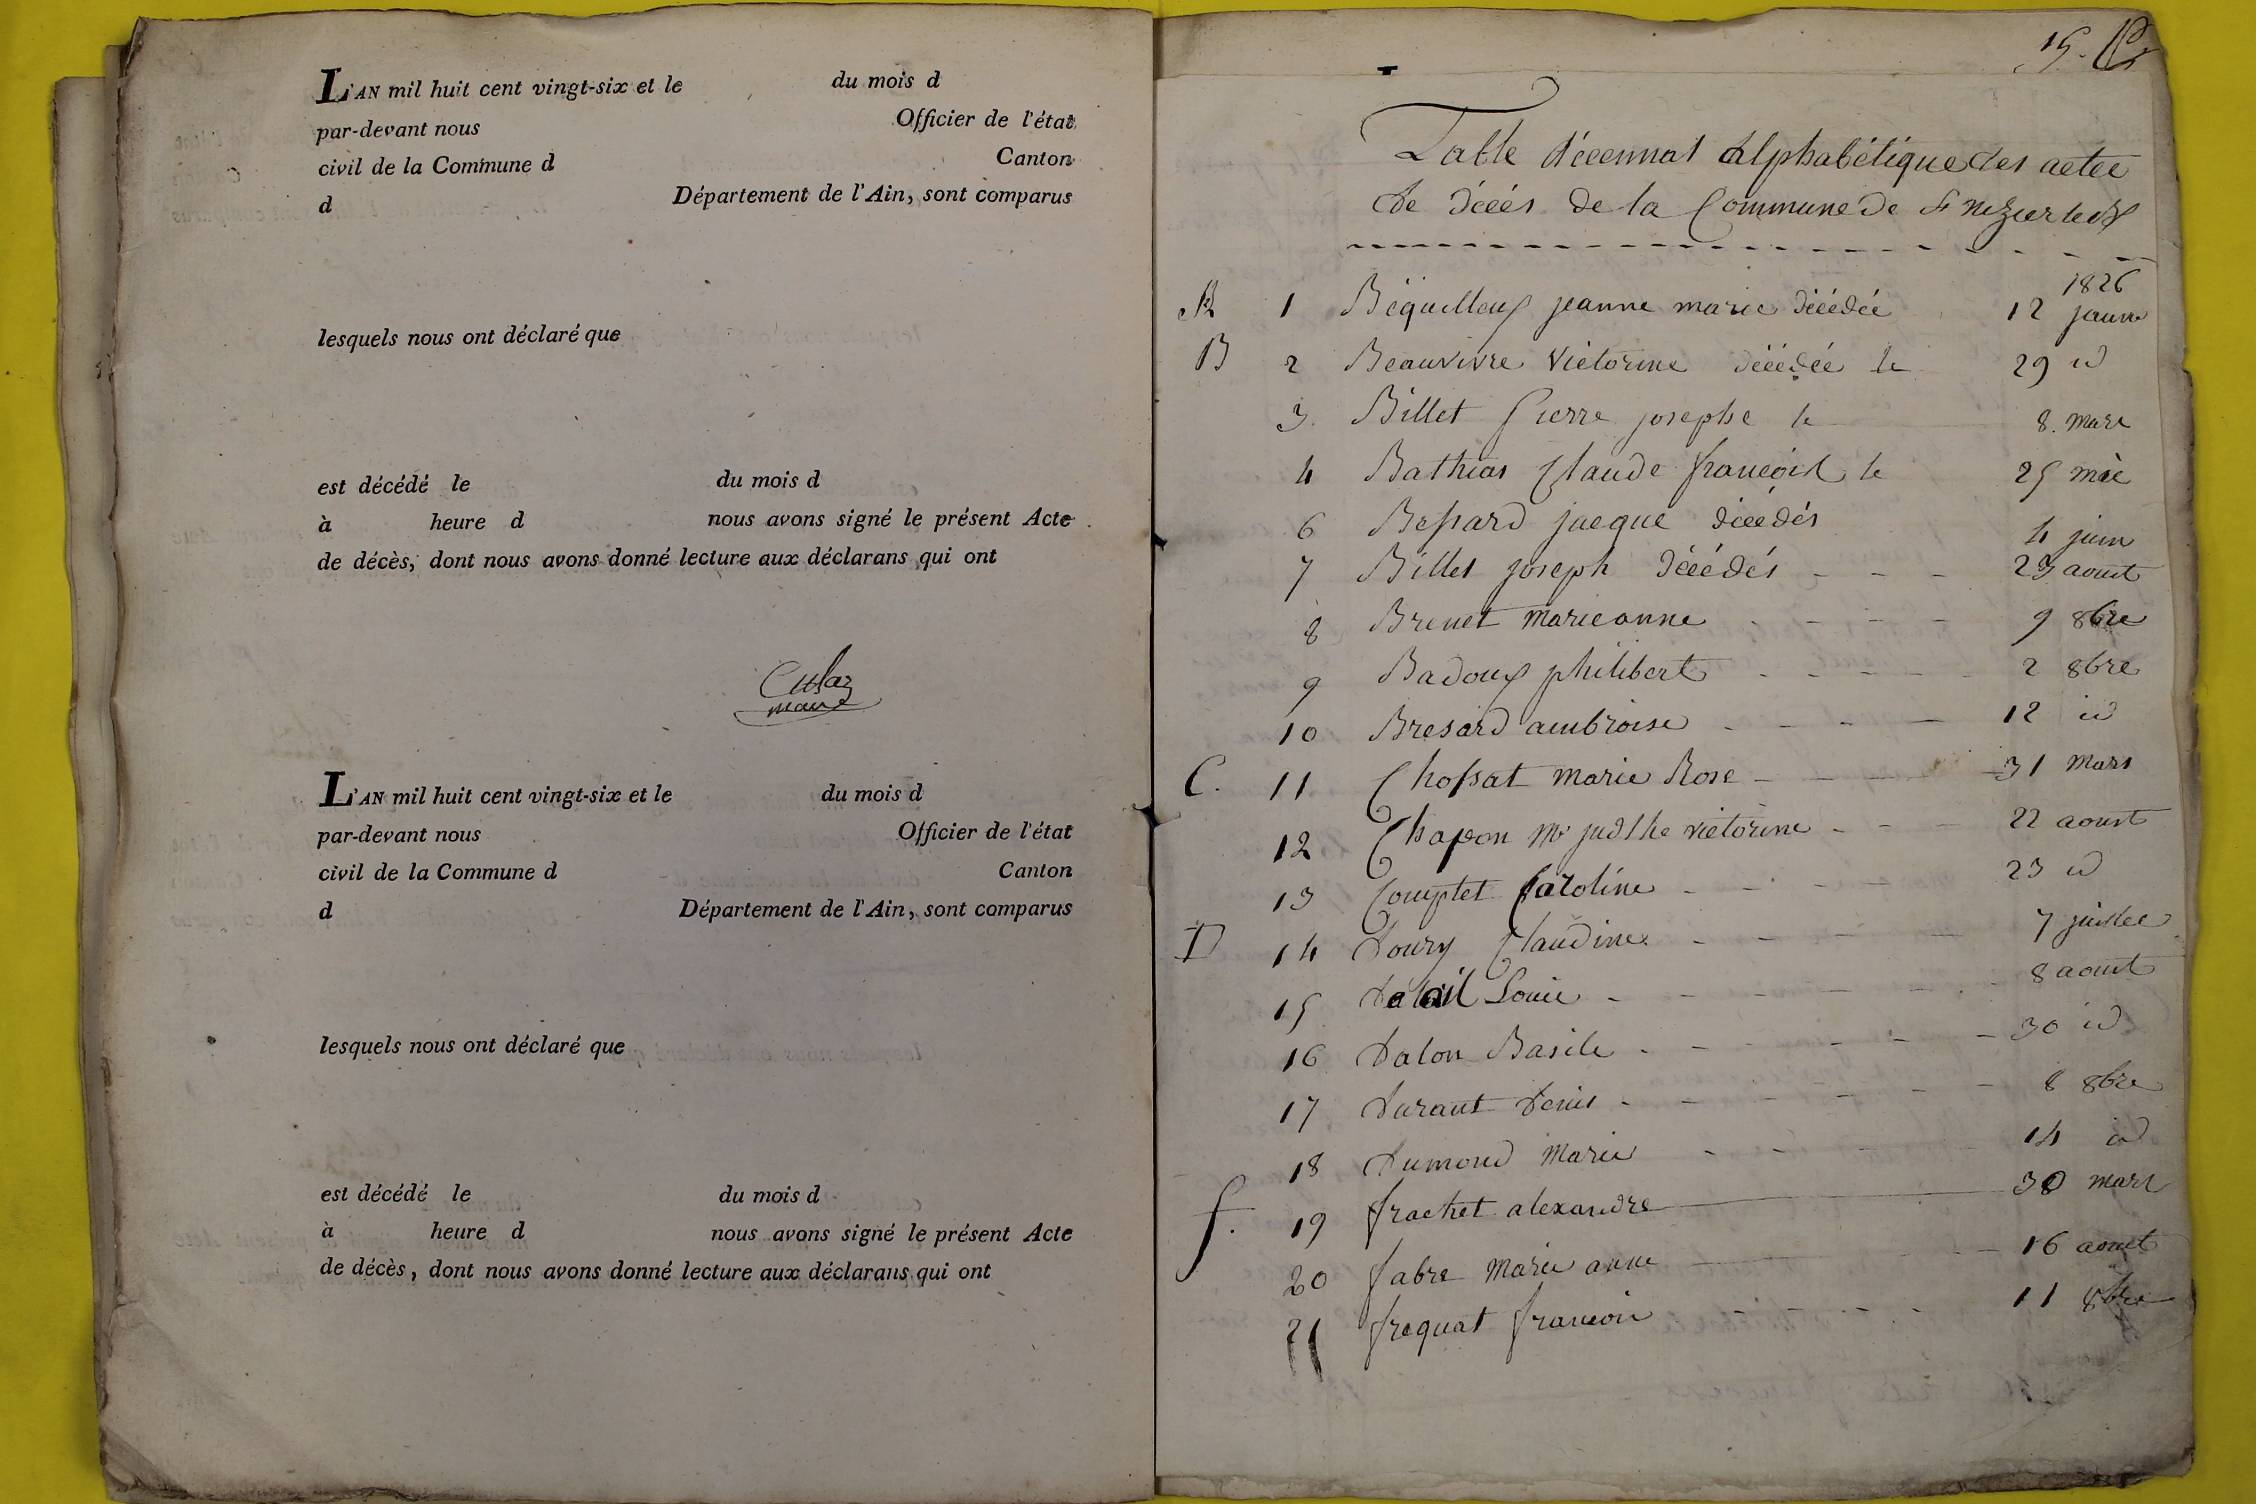 L'AN mil huit cent vingt-six et le du mois d
par-devant nous Officier de l'état
civil de la Commune d Canton
d Département de l'Ain, sont comparus
lesquels nous ont déclaré que
est décédé le du mois d
à heure d nous avons signé le présent Acte
de décès, dont nous avons donné lecture aux déclarans qui ont
Culaz
maire
L'AN mil huit cent vingt-six et le du mois d
par-devant nous Officier de l'état
civil de la Commune d Canton
d Département de l'Ain, sont comparus
lesquels nous ont déclaré que
est décédé le du mois d
à heure d nous avons signé le présent Acte
de décès, dont nous avons donné lecture aux déclarans qui ont
15.
Table décennal alphabétique des actes
de décés de la Commune de St nizier
1826
1 Béquilleux jeanne marie décédée 12 janv
B 2 Beauvivre victorine décédée le 29 id
3. Billet Pierre josephe le 8. mars
4 Bathias Claude françois le 25 mai
6 Bessard jacque décédés 4 juin
7 Billet joseph décédés 23 aoust
8 Brunet marieanne 9 8bre
9 Badoux philibert 2 8bre
10 Bresard ambroise 12 id
C. 11 Chossat marie Rose 31 mars
12 Chapon me judthe victorine 22 aoust
13 Comptet Caroline 23 id
D 14 Doury Claudine 7 juillee
15 Louis 8 aoust
16 Dalon Basile 30 id
17 Durant Denis 8 8bre
18 Dumond Marie 14 id
f. 19 frachet alexandre 30 mars
20 fabre marie anne 16 aoust
21 frequat francois 11 8bre